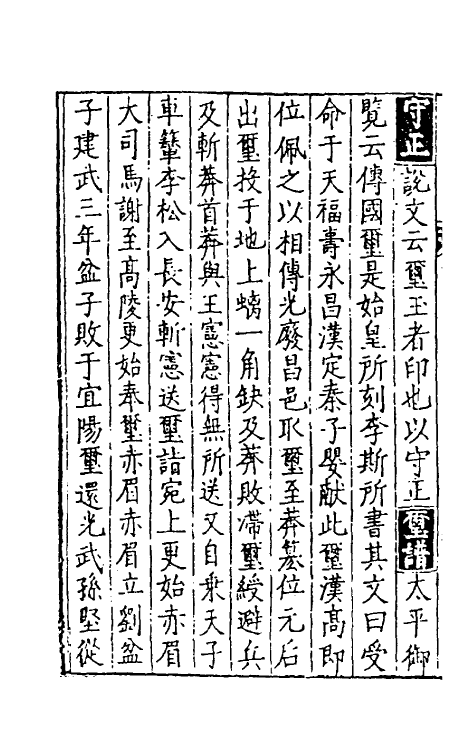 守正說文云璽王者印也以守正璽譜太平御
覽云傳國璽是始皇所刻李斯所書其文曰受
命于天福壽永昌漢定秦子嬰献此璽漢高即
位佩之以相傳光廢昌邑取璽至莽簒位元后
出璽投于地上螭一角缺及莽敗滯璽綬避兵
及斬莽首莽與王憲憲得無所送又自乗天子
車輦李松入長安斬憲送璽詣宛上更始赤眉
大司馬謝至髙陵更始奉璽赤眉赤眉立劉盆
子建武三年盆子敗于宜陽璽還光武孫堅從